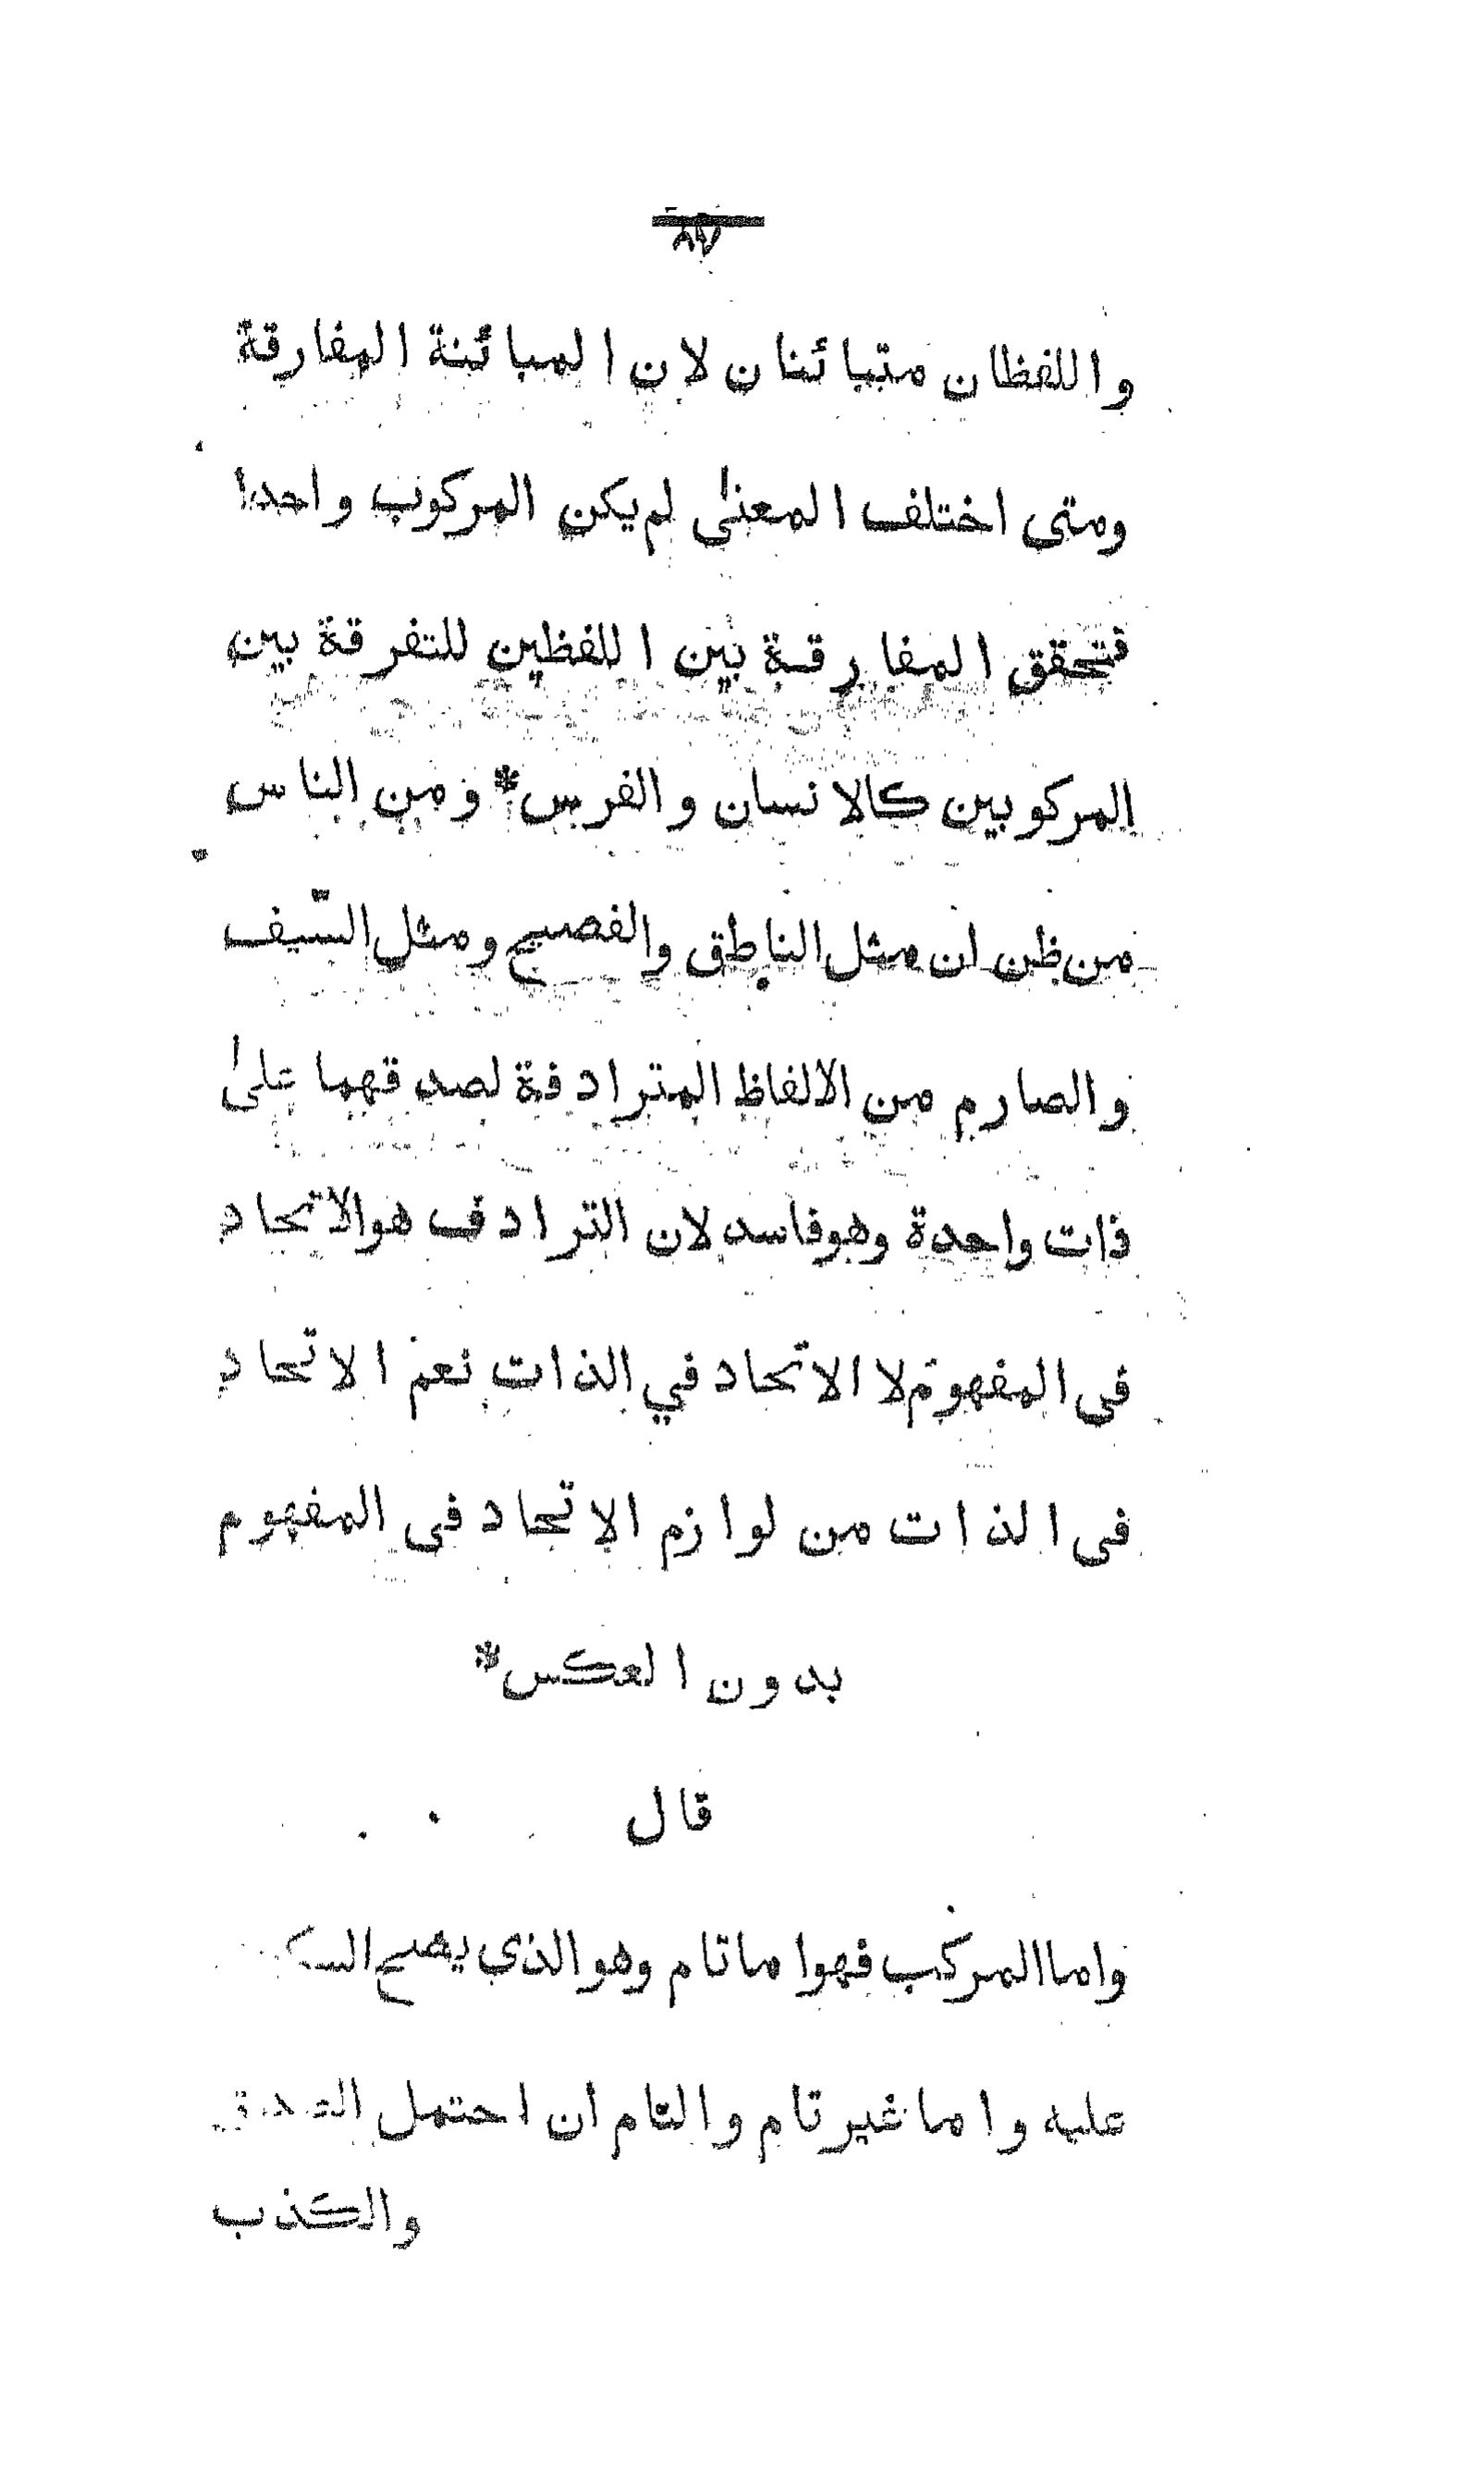 ٨٧
واللفظان متبائنان لان المبائنة المفارقة
ومتى اختلف المعنىٰ لم يكن المركوب واحدا
فتحقق المفارقة بين اللفظين للتفرقة بين
المركوبين كالانسان والفرس* ومن الناس
من ظن ان مثل الناطق والفصيح ومثل السّيف
والصارم من الالفاظ المترادفة لصدقهما علىٰ
ذات واحدة وهو فاسد لان الترادف هو الاتحاد
فى المفهوم لا الاتحاد في الذات نعم الاتحاد
فى الذات من لوازم الاتحاد فى المفهوم
بدون العكس*
قال
واما المركب فهو اما تام وهو الذي يصح
عليه واما غير تام والتام ان احتمل الصدق
والكذب